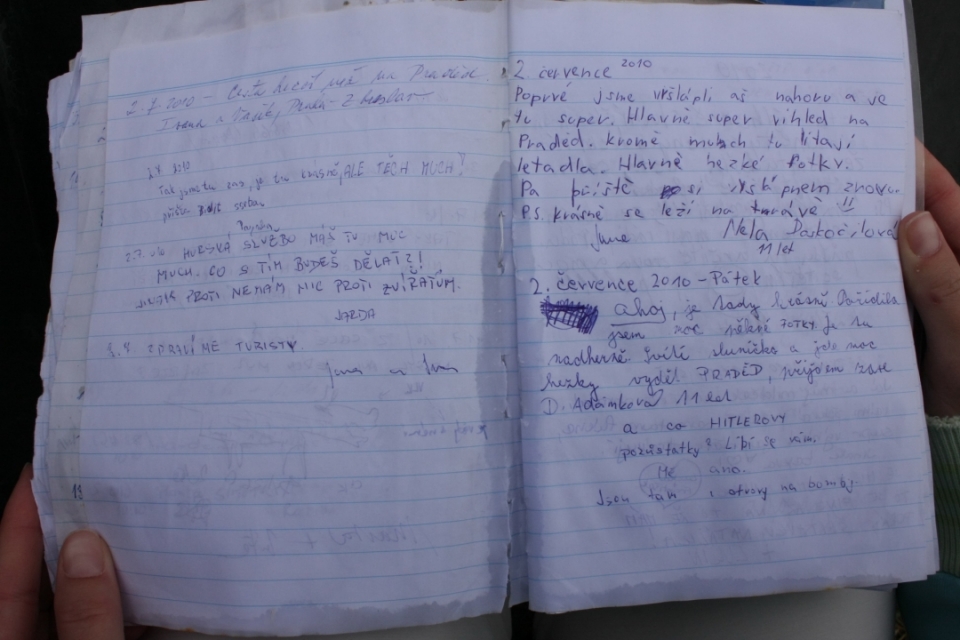 2.7.2010 - na Praděde.
Ivana a
2.7. 2010
Tak jsme tu zas, je tu krásně, ALE TĚCH MUCH!
příště
2.7. SLUŽBO MÁŠ TU MOC
MUCH. CO S TÍM BUDEŠ DĚLAT?!
PROTI NEMÁM NIC PROTI ZVÍŘATŮM.
JARDA
ZDRAVÍME TURISTY
Jana a
2. července 2010
Poprvé jsme vyšlápli až nahoru a je
tu super. Hlavně super vihled na
Praděd. kromě much tu lítají
letadla. Hlavně hezké fotky.
Pa příště si vyšlápnem znovu.
P.S. krásně se leží na trávě
Nela
11 let
2. července 2010 - Pátek
ahoj, je tady krásně Pořídila
jsem moc pěkné FOTKY je tu
nadherně svítí sluníčko a jde moc
hezky vyděť PRADĚD, přijdem zase
D. Adámková 11 let
a co HITLEROVY
pozůstatky? Líbí se vám.
Me ano.
Jsou tam i otvory na bomby.